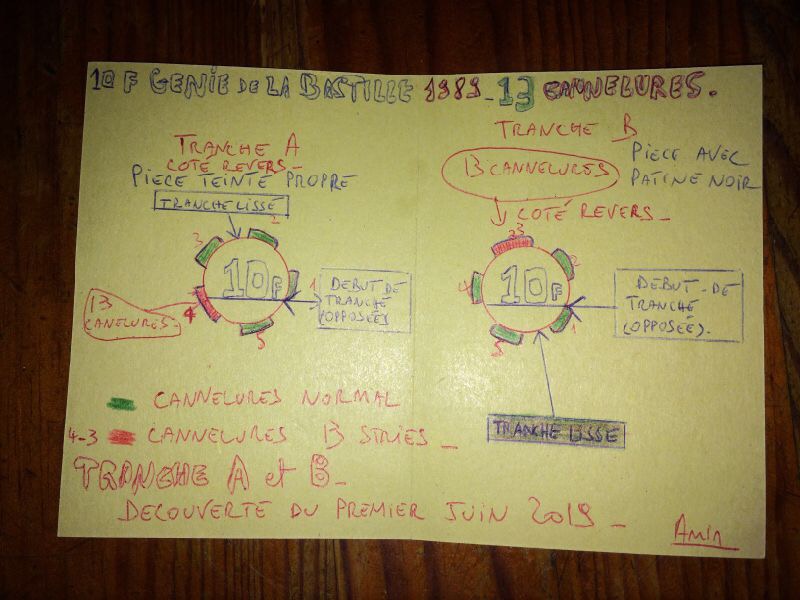 10 F GENIE DE LA BASTILLE 1989_13 CANNELURES.
TRANCHE A
COTÉ REVERS_
PIECE TEINTÉ PROPRE
TRANCHE LISSÉ
2
3
10 F
1
DEBUT DE
TRANCHE
(OPPOSÉE)
13
CANELURES_
4
5
TRANCHE B
PIECE AVEC
PATINE NOIR
13 CANNELURES
COTÉ REVERS_
3
2
4
10 F
1
5
DEBUT-DE
TRANCHE
(OPPOSÉE).
TRANCHE LISSE
CANNELURES NORMAL
4-3 CANNELURES 13 STRIES_
TRANCHE A et B_
DECOUVERTE DU PREMIER JUIN 2019_
Amin